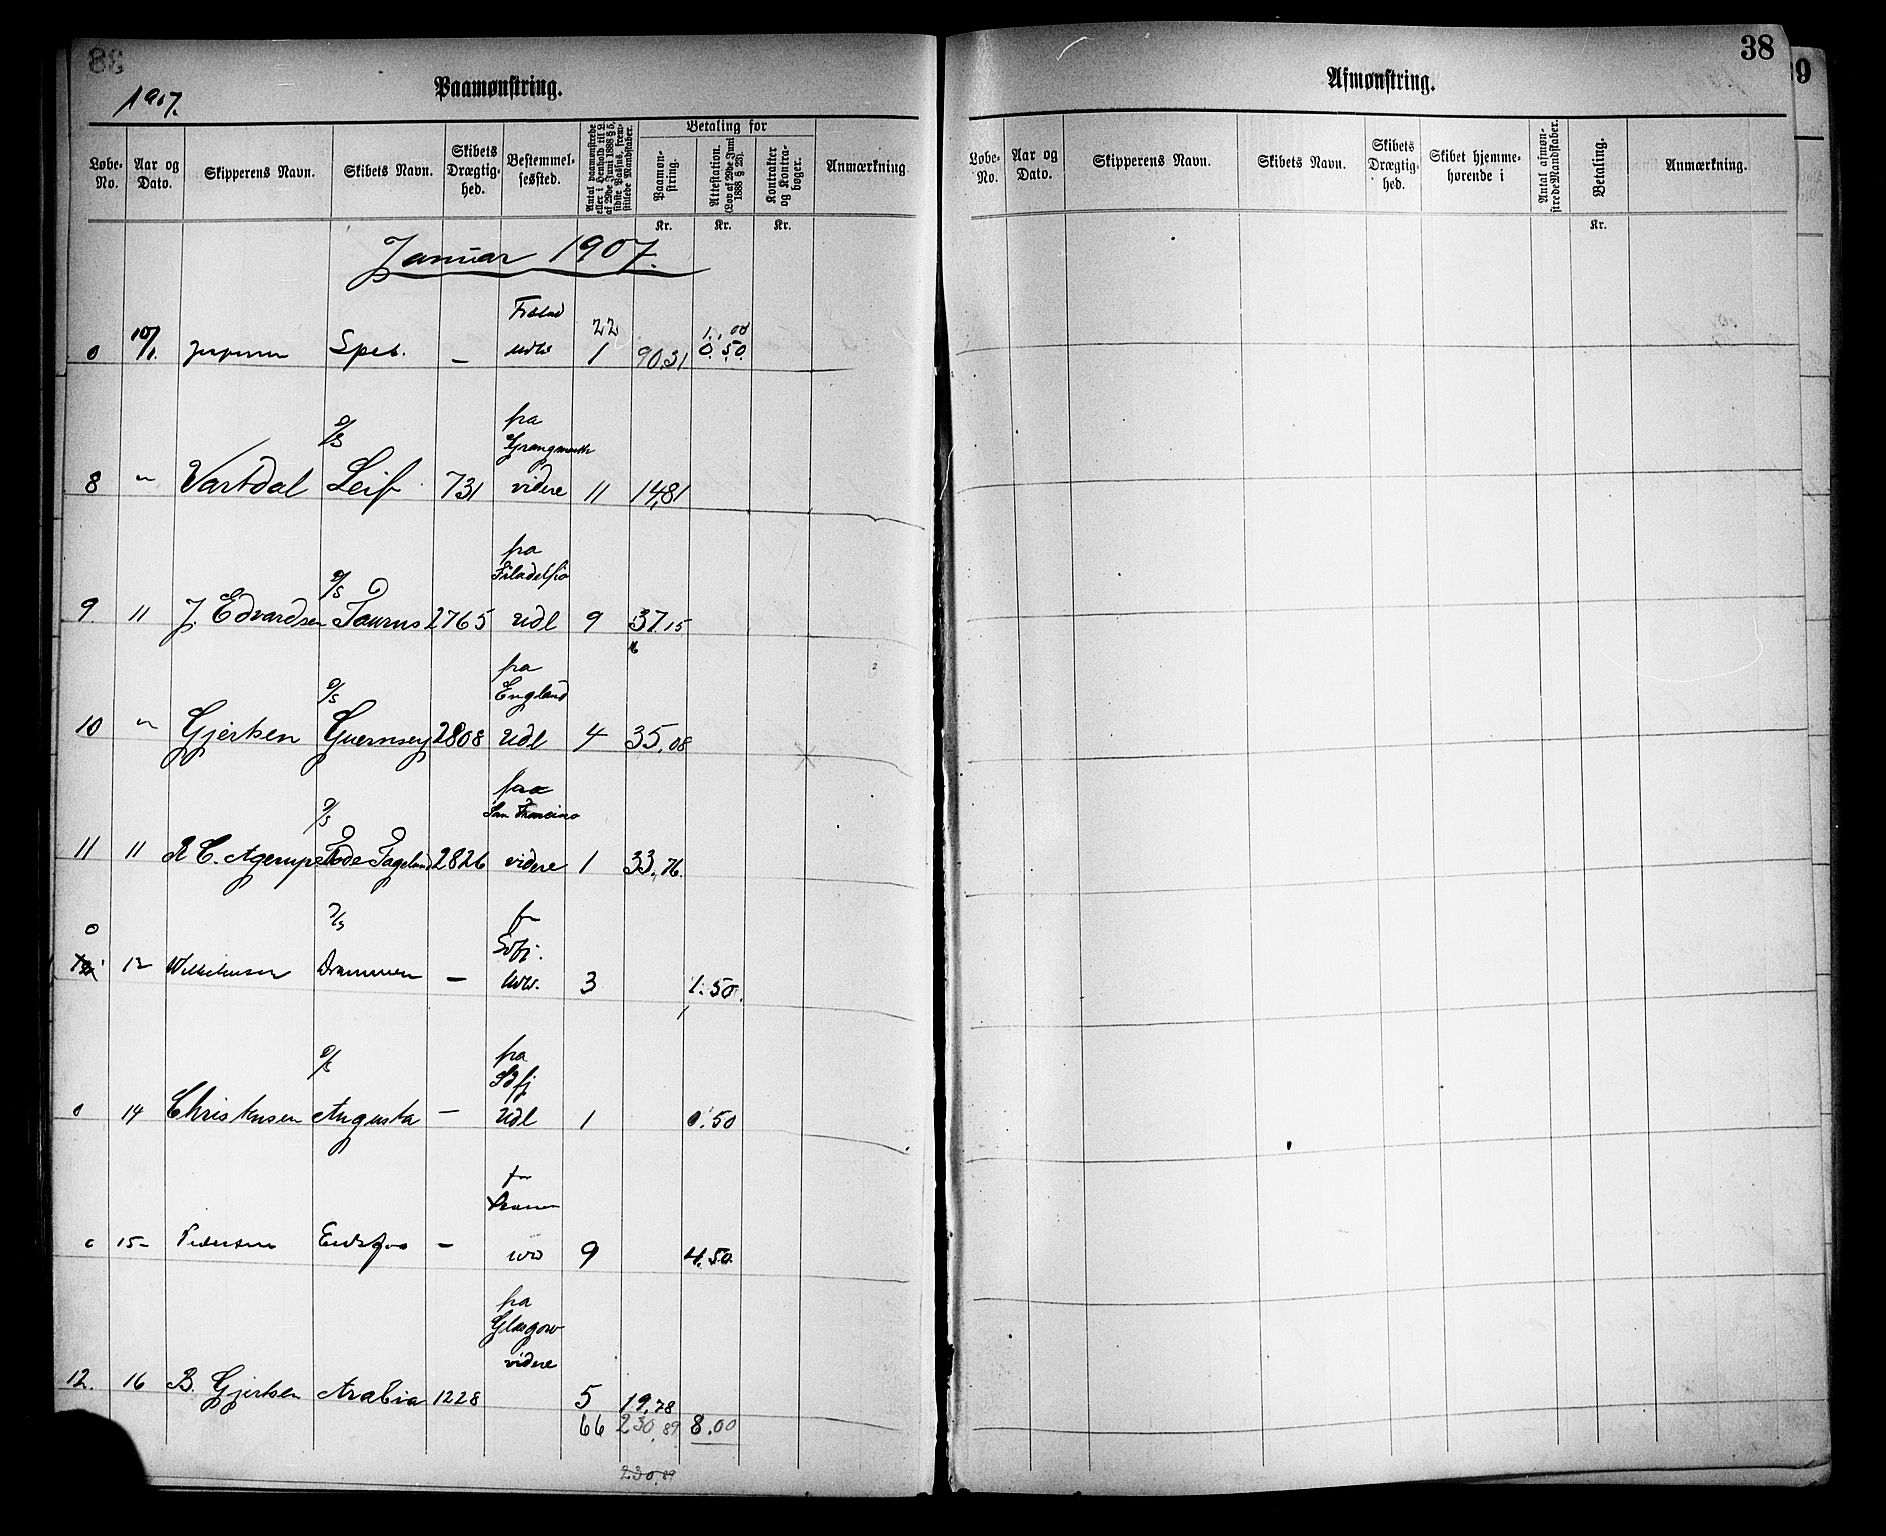 38
1907.
Paamønstring.
Løbe-No.
Aar og Dato.
Skipperens Navn.
Skibets Navn.
Skibets Drægtighed.
Bestemmelsessted.
Antal paamønstrede eller i Henhold til L. af 29de Juni 1888 § 5, sidste Passus, fremstillede Mandskaber.
Betaling for
Paamønstring.
Attestation. (Lov af 29de Juni 1888 § 23).
Kontrakter og Kontrabøger.
Anmærkning.
Kr. Kr. Kr.
Januar 1907.
22 1.00
0 10/1. Spes. — 1 90.31 0.50
D/S fra
Grangmouth
8 " Vartdal Leif 731 videre 11 14,81
D/S fra
Filadelfia
9. 11 J. Edvardsen Taurus 2765 Udl 9 37.15
D/S fra
England
10 " Gjertsen Guernsey 2808 Udl 4 35,08
D/S fra
San Francisco
11 11 R C. Agerup Tordenskjold 2826 videre 1 33,76.
0
12 Drammen — Udl. 3 1.50.
D/S fra
Sdfj
0 14 Christensen Augusta — Udl 1 0.50
0 15 Pedersen — 9 4.50.
fra
Glasgow
videre
12. 16 B. Gjertsen Arabia 1228 5 19,78
66 230,89 8.00
230,89
38
Afmønstring.
Løbe-No.
Aar og Dato.
Skipperens Navn.
Skibets Navn.
Skibets Drægtighed.
Skibet hjemmehørende i
Antal afmønstrede Mandskaber.
Betaling.
Anmærkning.
Kr.
9